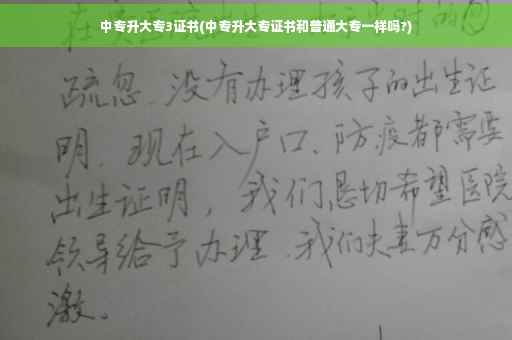 中专升大专3证书(中专升大专证书和普通大专一样吗?)
在 医院
疏忽、没有办理孩子的出生证
明、现在入户口、防疫都需要
出生证明,我们恳切希望医院
领导给予办理、我们夫妻万分感
激。